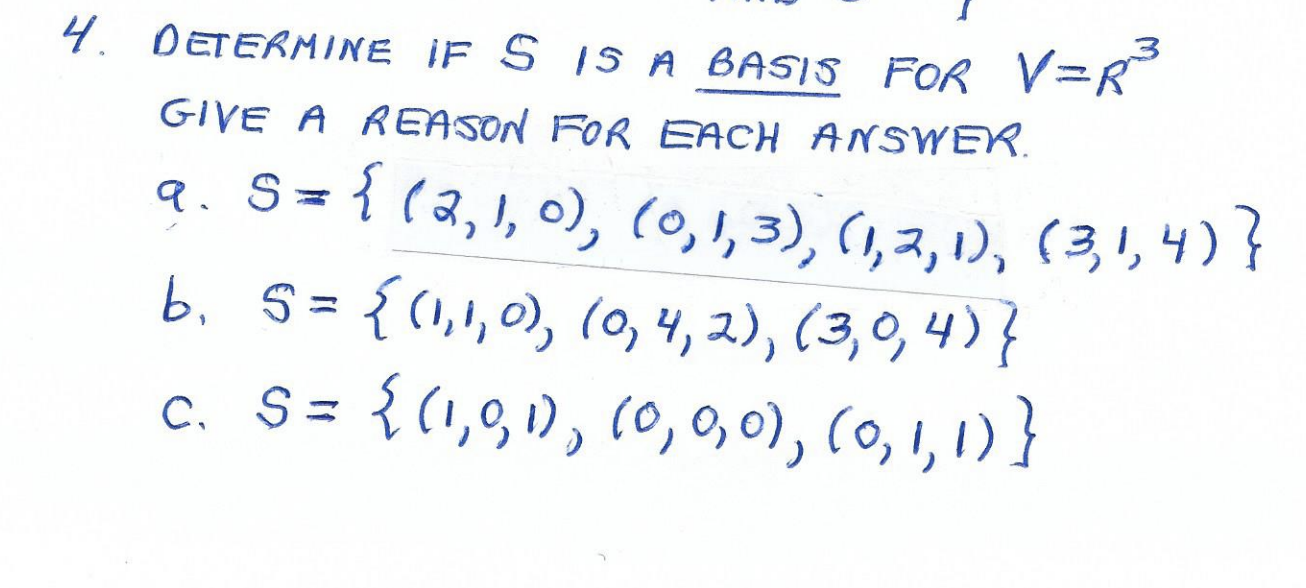 4. DETERMINE IF S IS A BASIS FOR V=R³
GIVE A REASON FOR EACH ANSWER.
a. S = { (2, 1, 0), (0, 1, 3), (1, 2, 1), (3, 1, 4) }
b. S = { (1, 1, 0), (0, 4, 2), (3, 0, 4) }
c. S = { (1, 0, 1), (0, 0, 0), (0, 1, 1) }